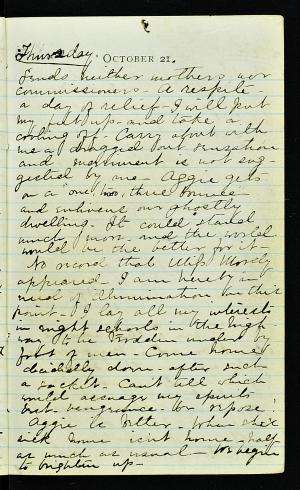 Thursday. OCTOBER 21.
Finds neither mothers nor
commissioners - A respite -
a day of relief - I will put
my feet up and take a
cooling off - Carry about with
me a dragged out sensation
and merriment is not sug-
gested by me - Aggie gets
on a "one, two, three bounce"
and enlivens our ghostly
dwelling. It could stand
much more - and the world
would be the better for it -
No record that Miss Moody
appeared - I am hereby in
need of illumination on this
point - I lay all my interests
in night schools in the high-
way to be trodden under by
foot of men - Come home
decidedly down - after such
a racket - Can't tell which
would assuage my spirits
best - vengeance or repose!
Aggie is better - When she's
sick home isn't home - half
as much as usual - We begin
to brighten up -